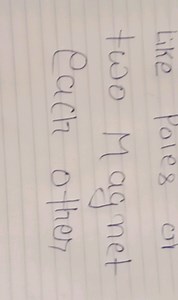 Like Poles on
two Magnet
each other